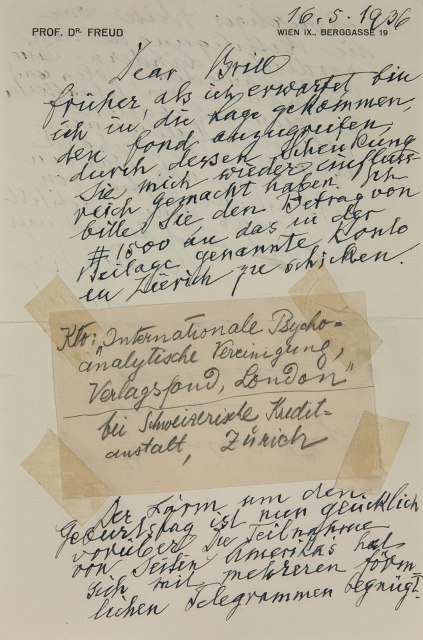 16.5.1936
PROF. DR. FREUD
WIEN IX., BERGGASSE 19
Dear Brill
früher, als ich erwartet bin
ich in die Lage gekommen,
den fond anzugreifen,
durch dessen Schenkung
Sie mich wieder einfluss-
reich gemacht haben. Ich
bitte Sie den Betrag von
#1500 an das in der
Beilage genannte Konto
in Zürich zu schicken.
Kto: "Internationale Psycho-
analytische Vereinigung,
Verlagsfond, London"
bei Schweizerische Kredit-
anstalt, Zürich
Der Lärm um den
Geburtstag ist nun glücklich
vorüber. Die Teilnahme
von Seiten Amerikas hat
sich mit mehreren förm-
lichen Telegrammen begnügt.